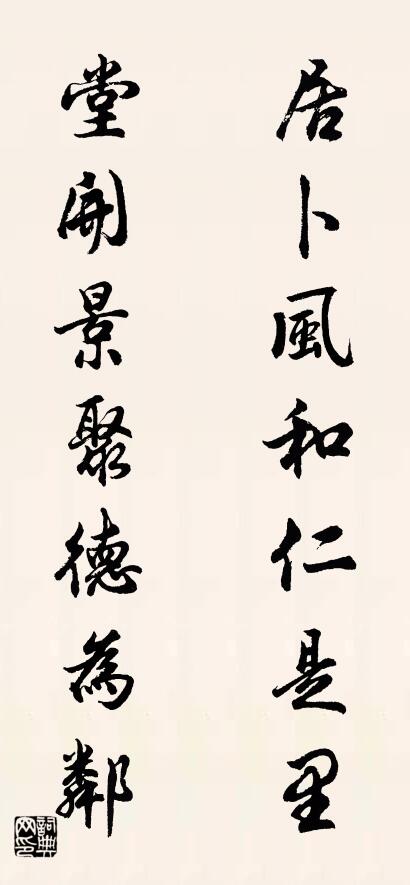 居卜風和仁是里
堂開景聚德為鄰
詞典網印